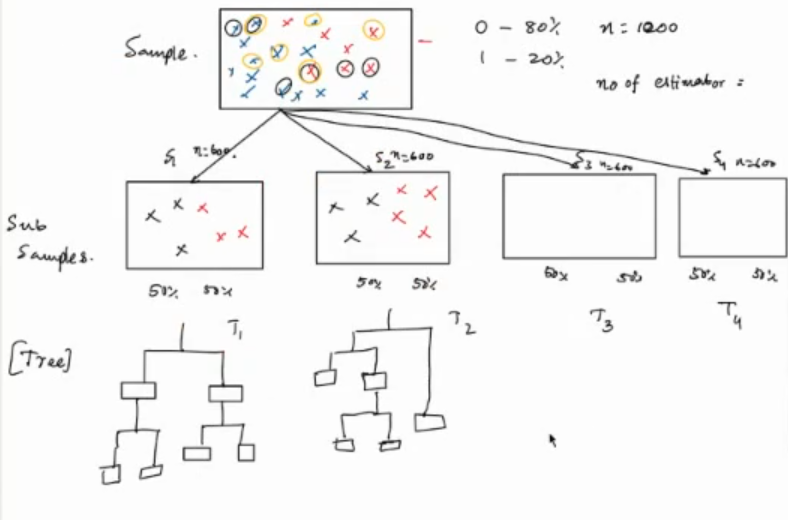 Sample.
0 - 80% n = 1200
1 - 20%
no of estimator =
S1 n=600. S2 n=600 S3 n=600 S4 n=600
Sub
Samples.
50% 50% 50% 50% 50% 50% 50% 50%
T1 T2 T3 T4
[Tree]